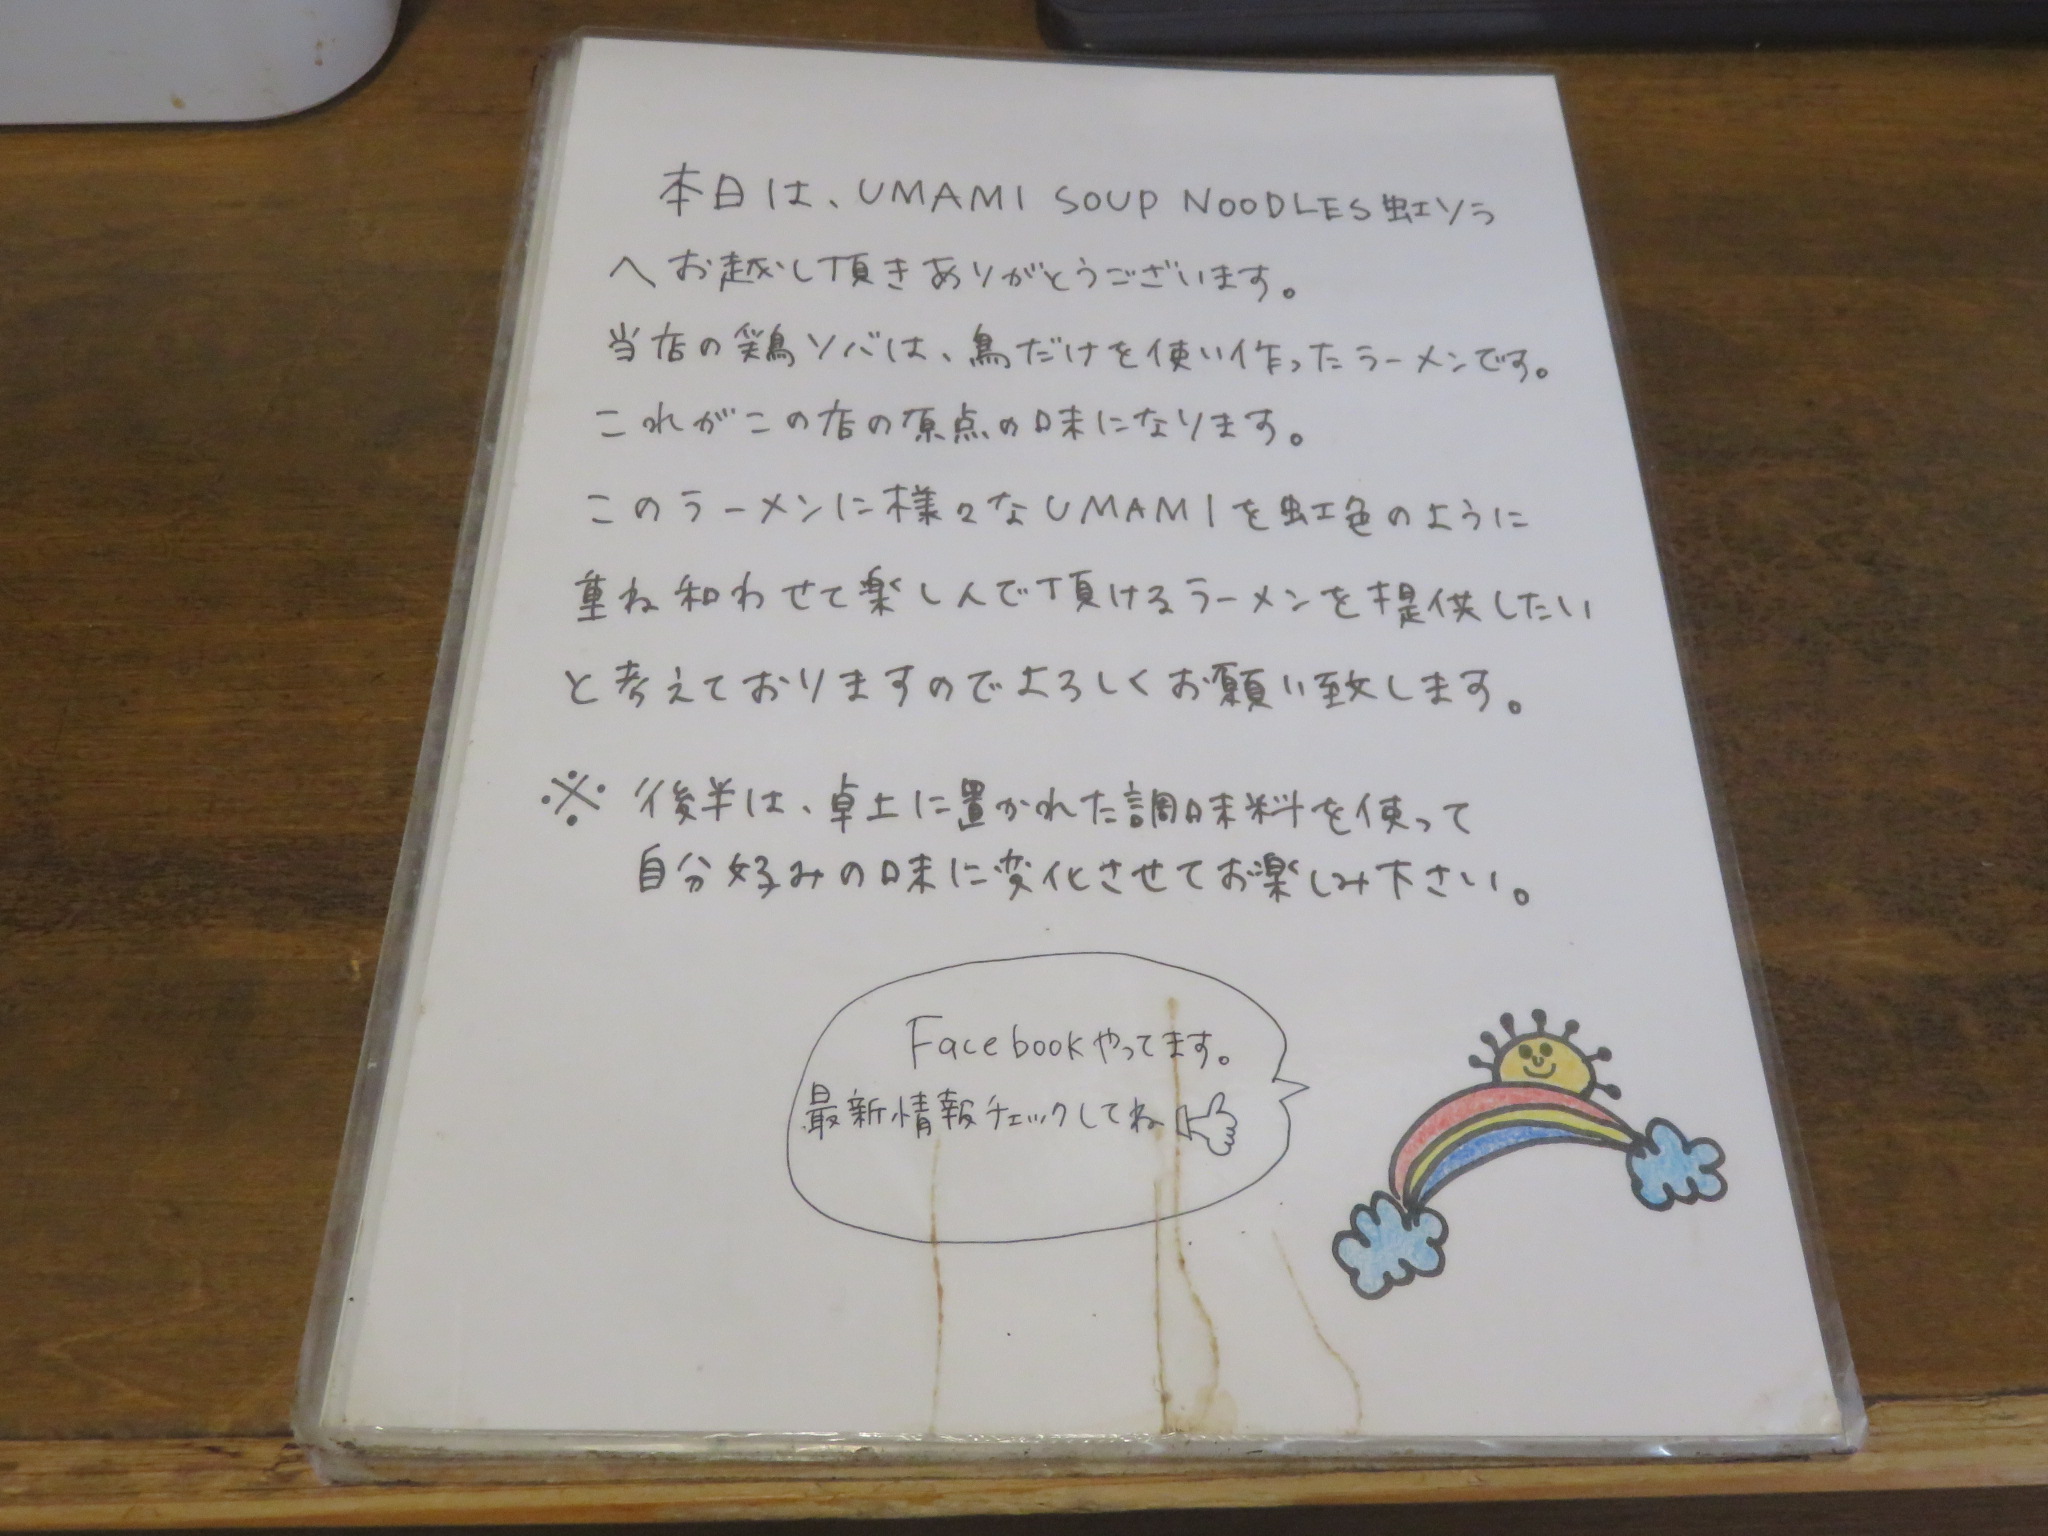 本日は、UMAMI SOUP NOODLES虹ソラ
へお越し頂きありがとうございます。
当店の鶏ソバは、鳥だけを使い作ったラーメンです。
これがこの店の原点の味になります。
このラーメンに様々なUMAMIを虹色のように
重ね和わせて楽しんで頂けるラーメンを提供したい
と考えておりますのでよろしくお願い致します。
※ 後半は、卓上に置かれた調味料を使って
自分好みの味に変化させてお楽しみ下さい。
Facebookやってます。
最新情報チェックしてね